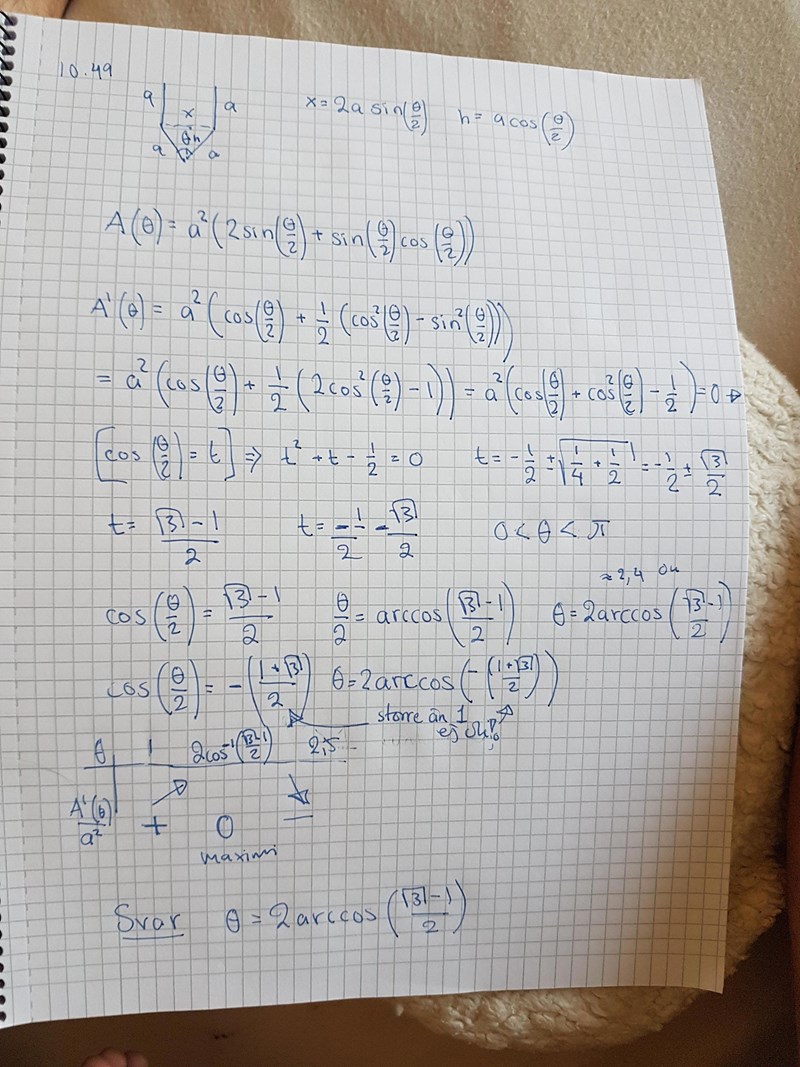 10.49
a x a x = 2a sin(θ/2) h = a cos(θ/2)
a θ h a
A(θ) = a²(2sin(θ/2) + sin(θ/2)cos(θ/2))
A'(θ) = a²(cos(θ/2) + 1/2 (cos²(θ/2) - sin²(θ/2)))
= a²(cos(θ/2) + 1/2 (2cos²(θ/2) - 1)) = a²(cos(θ/2) + cos²(θ/2) - 1/2) = 0 →
[cos(θ/2) = t] ⇒ t² + t - 1/2 = 0 t = -1/2 ± √(1/4 + 1/2) = -1/2 ± √3/2
t = (√3 - 1)/2 t = -1/2 - √3/2 0 < θ < π
≈ 2,4 OK
cos(θ/2) = (√3 - 1)/2 θ/2 = arccos((√3 - 1)/2) θ = 2arccos((√3 - 1)/2)
cos(θ/2) = -((1 + √3)/2) θ = 2arccos(-((1 + √3)/2))
större än 1
ej OK!
θ 1 2cos⁻¹((√3 - 1)/2) 2,5
A'(θ)/a² + ↗ 0 ↘ −
maximi
Svar θ = 2arccos((√3 - 1)/2)